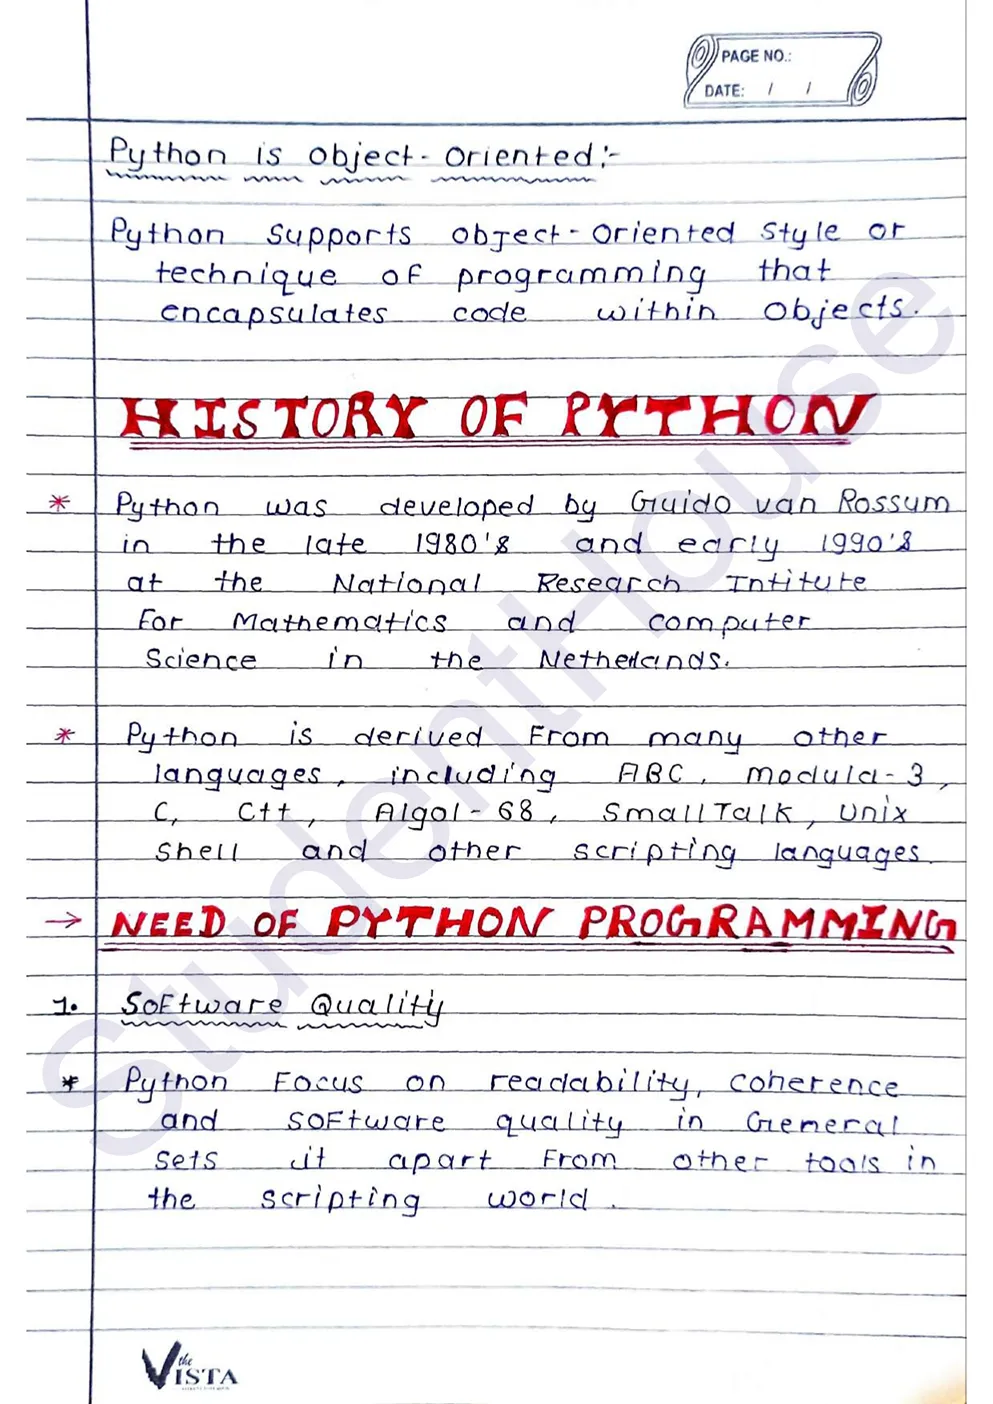 PAGE NO.:
DATE: / /
Python is object-oriented:-
Python supports object-oriented style or
technique of programming that
encapsulates code within objects.
HISTORY OF PYTHON
* Python was developed by Guido van Rossum
in the late 1980's and early 1990's
at the National Research Intitute
For Mathematics and computer
Science in the Netherlands.
* Python is derived From many other
languages, including ABC, Modula-3,
C, C++, Algol-68, SmallTalk, Unix
Shell and other scripting languages.
→ NEED OF PYTHON PROGRAMMING
1. Software Quality
* Python Focus on readability, coherence
and software quality in General
sets it apart From other tools in
the scripting world.
StudentHouse
the VISTA